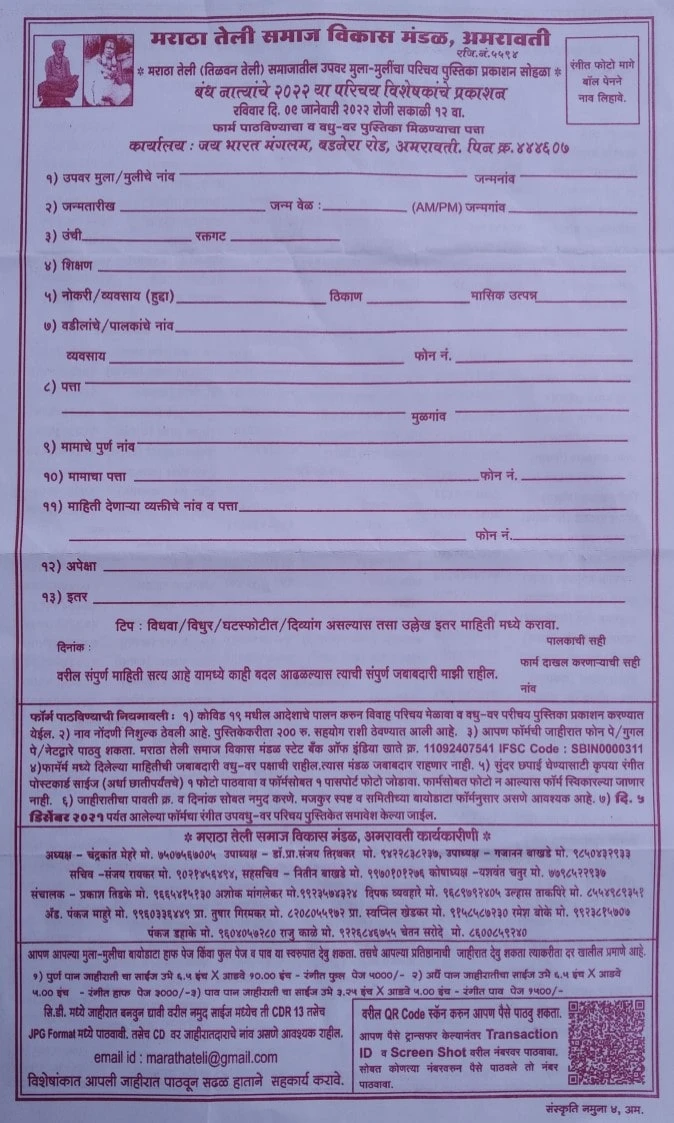 मराठा तेली समाज विकास मंडळ, अमरावती
रजि.नं.५५९४
* मराठा तेली (तिळवन तेली) समाजातील उपवर मुला-मुलींचा परिचय पुस्तिका प्रकाशन सोहळा *
बंध नात्यांचे २०२२ या परिचय विशेषकांचे प्रकाशन
रविवार दि. ०९ जानेवारी २०२२ रोजी सकाळी १२ वा.
फार्म पाठविण्याचा व वधु-वर पुस्तिका मिळण्याचा पत्ता
कार्यालय : जय भारत मंगलम, बडनेरा रोड, अमरावती. पिन क्र.४४४६०७
रंगीत फोटो मागे
बॉल पेनने
नाव लिहावे.
१) उपवर मुला/मुलीचे नांव जन्मनांव
२) जन्मतारीख जन्म वेळ : (AM/PM) जन्मगांव
३) उंची रक्तगट
४) शिक्षण
५) नोकरी/व्यवसाय (हुद्दा) ठिकाण मासिक उत्पन्न
७) वडीलांचे/पालकांचे नांव
व्यवसाय फोन नं.
८) पत्ता
मुळगांव
९) मामाचे पुर्ण नांव
१०) मामाचा पत्ता फोन नं.
११) माहिती देणाऱ्या व्यक्तीचे नांव व पत्ता
फोन नं.
१२) अपेक्षा
१३) इतर
टिप : विधवा/विधुर/घटस्फोटीत/दिव्यांग असल्यास तसा उल्लेख इतर माहिती मध्ये करावा.
दिनांक : पालकाची सही
वरील संपुर्ण माहिती सत्य आहे यामध्ये काही बदल आढळल्यास त्याची संपुर्ण जबाबदारी माझी राहील.
फार्म दाखल करणाऱ्याची सही
नांव
फॉर्म पाठविण्याची नियमावली : १) कोविड १९ मधील आदेशाचे पालन करुन विवाह परिचय मेळावा व वधु-वर परीचय पुस्तिका प्रकाशन करण्यात
येईल. २) नाव नोंदणी निशुल्क ठेवली आहे. पुस्तिकेकरीता २०० रु. सहयोग राशी ठेवण्यात आली आहे. ३) आपण फॉर्मची जाहीरात फोन पे/गुगल
पे/नेटद्वारे पाठवु शकता. मराठा तेली समाज विकास मंडळ स्टेट बँक ऑफ इंडिया खाते क्र. 11092407541 IFSC Code : SBIN0000311
४)फार्मॅम मध्ये दिलेल्या माहितीची जबाबदारी वधु-वर पक्षाची राहील.त्यास मंडळ जबाबदार राहणार नाही. ५) सुंदर छपाई घेण्यासाठी कृपया रंगीत
पोस्टकार्ड साईज (अर्धा छातीपर्यंतचे) १ फोटो पाठवावा व फॉर्मसोबत १ पासपोर्ट फोटो जोडावा. फार्मसोबत फोटो न आल्यास फॉर्म स्विकारल्या जाणार
नाही. ६) जाहीरातीचा पावती क्र. व दिनांक सोबत नमुद करणे. मजकुर स्पष्ट व समितीच्या बायोडाटा फॉर्मनुसार असणे आवश्यक आहे. ७) दि. ५
डिसेंबर २०२१ पर्यत आलेल्या फॉर्मचा रंगीत उपवधु-वर परिचय पुस्तिकेत समावेश केल्या जाईल.
* मराठा तेली समाज विकास मंडळ, अमरावती कार्यकारीणी *
अध्यक्ष - चंद्रकांत मेहरे मो. ७५०७५६७००५ उपाध्यक्ष - डॉ.प्रा.संजय तिरथकर मो. ९४२२८३८२३७, उपाध्यक्ष - गजानन बाखडे मो. ९८५०४३२९३३
सचिव -संजय रायकर मो. ९०२१४५६४९४, सहसचिव - नितीन बाखडे मो. ९९७०१०१२७६ कोषाध्यक्ष -यशवंत चतुर मो. ७७९८५२२९३७
संचालक - प्रकाश तिडके मो. ९६६५४१५१३० अशोक मांगलेकर मो.९९२३५७४३२४ दिपक व्यवहारे मो. ९६८९७९२४०५ उल्हास ताकपिरे मो. ८५५४९८९३५१
अँड. पंकज माहुरे मो. ९९६०३३६४४९ प्रा. तुषार गिरमकर मो. ८२०८०५५१७२ प्रा. स्वप्निल खेडकर मो. ९१५८५८७२३० रमेश बोके मो. ९९२३८१५७०७
पंकज डहाके मो. ९६०४०५७२८० राजु काळे मो. ९२२६८४६७५५ चेतन सरोदे मो. ८६००८५९२४०
आपण आपल्या मुला-मुलींचा बायोडाटा हाफ पेज किंवा फुल पेज व पाव या स्वरुपात देवु शकता. तसचे आपल्या प्रतिष्ठानाची जाहीरात देवु शकता त्याकरीता दर खालील प्रमाणे आहे.
१) पुर्ण पान जाहीराती चा साईज उभे ६.५ इंच X आडवे १०.०० इंच - रंगीत फुल पेज ५०००/- २) अर्धे पान जाहीरातीचा साईज उभे ६.५ इंच X आडवे
५.०० इंच - रंगीत हाफ पेज ३०००/-३) पाव पान जाहीराती चा साईज उभे ३.२५ इंच X आडवे ५.०० इंच - रंगीत पाव पेज १५००/-
सि.डी. मध्ये जाहीरात बनवुन द्यावी वरील नमुद साईज मध्येच ती CDR 13 तसेच
JPG Format मध्ये पाठवावी. तसेच CD वर जाहीरातदाराचे नांव असणे आवश्यक राहील.
email id : marathateli@gmail.com
विशेषांकात आपली जाहीरात पाठवून सढळ हाताने सहकार्य करावे.
वरील QR Code स्कॅन करुन आपण पैसे पाठवु शकता.
आपण पैसे ट्रान्सफर केल्यानंतर Transaction
ID व Screen Shot वरील नंबरवर पाठवावा.
सोबत कोणत्या नंबरवरुन पैसे पाठवले तो नंबर
पाठवावा.
संस्कृति नमुना ४, अम.